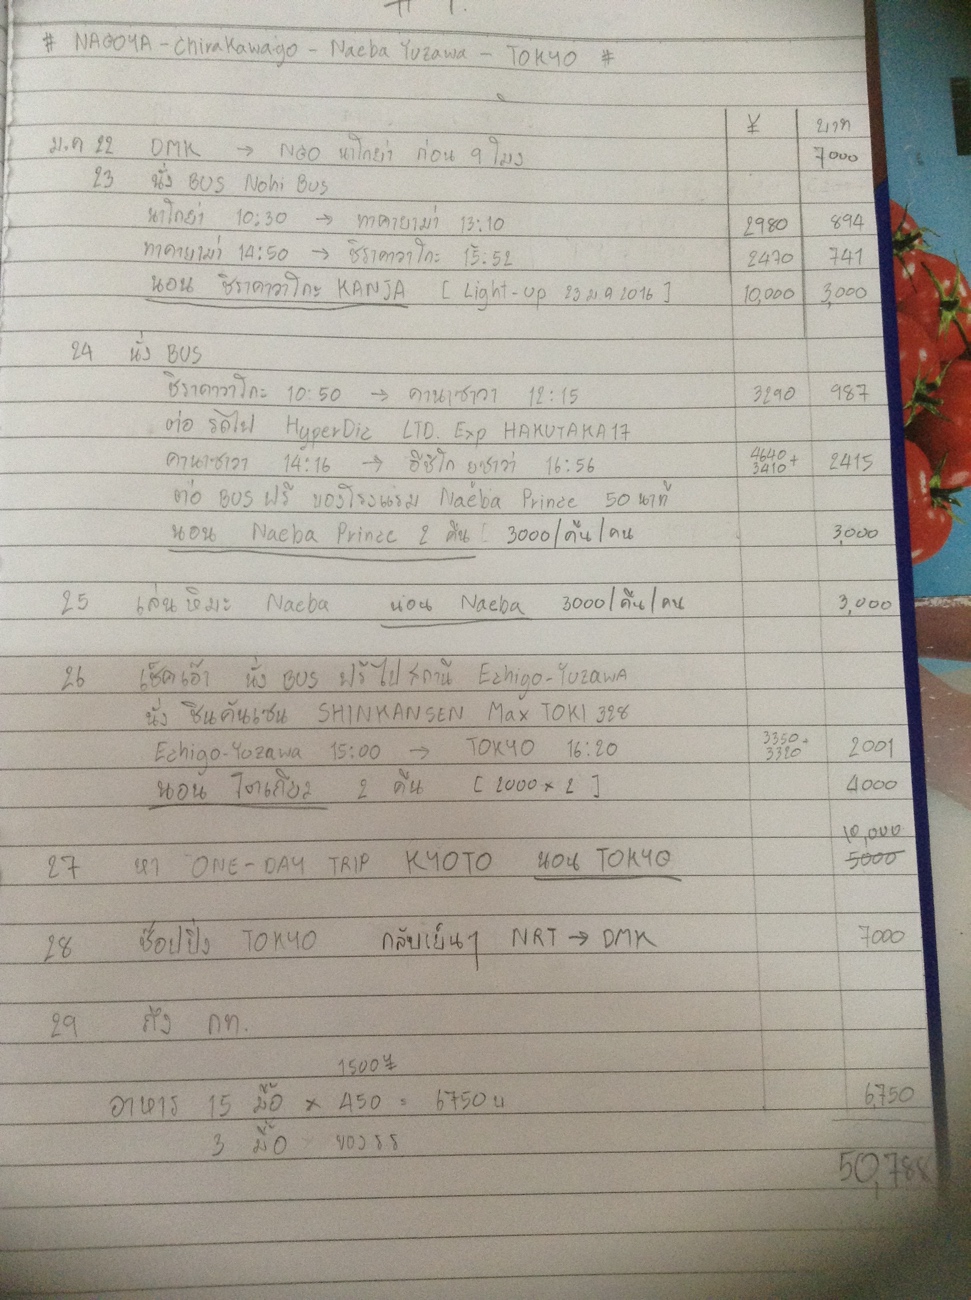 # 1.
# NAGOYA - Chirakawago - Naeba Yuzawa - TOKYO #
¥ บาท
ม.ค 22 DMK → NGO นาโกย่า ก่อน 9 โมง 7000
23 นั่ง BUS Nohi Bus
นาโกย่า 10:30 → ทาคายาม่า 13:10 2980 894
ทาคายาม่า 14:50 → ชิราคาวาโกะ 15:52 2470 741
นอน ชิราคาวาโกะ KANJA [ Light-up 23 ม.ค 2016 ] 10,000 3,000
24 นั่ง BUS
ชิราคาวาโกะ 10:50 → คานาซาวา 12:15 3290 987
ต่อ รถไฟ HyperDia LTD. Exp HAKUTAKA 17
คานาซาวา 14:16 → อิชิโก ยูซาว่า 16:56 4640+3410 2415
ต่อ BUS ฟรี ของโรงแรม Naeba Prince 50 นาที
นอน Naeba Prince 2 คืน [ 3000/คืน/คน 3,000
25 เล่นหิมะ Naeba นอน Naeba 3000/คืน/คน 3,000
26 เช็คเอ้า นั่ง BUS ฟรีไปสถานี Echigo-Yuzawa
นั่ง ชินคันเซน SHINKANSEN Max TOKI 328
Echigo-Yuzawa 15:00 → TOKYO 16:20 3350+3320 2001
นอน โตเกียว 2 คืน [ 2000 x 2 ] 4000
10,000
27 หา ONE-DAY TRIP KYOTO นอน TOKYO 5000
28 ช๊อปปิ้ง TOKYO กลับเย็นๆ NRT → DMK 7000
29 ถึง กท.
1500¥
อาหาร 15 มื้อ x 450 = 6750 บ 6,750
3 มื้อ ของ รร
50,788